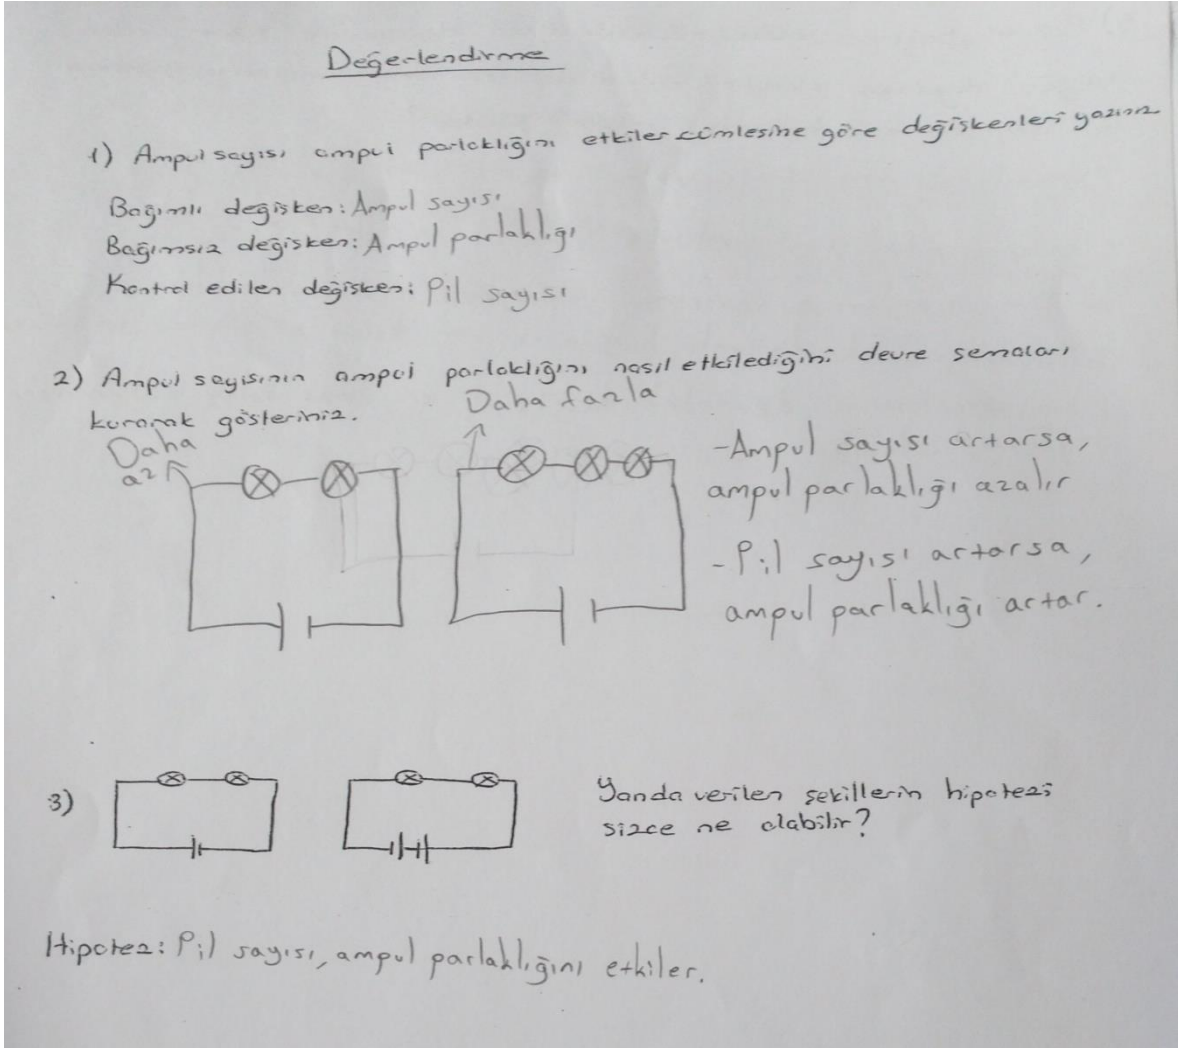 Değerlendirme
1) Ampul sayısı ampul parlaklığını etkiler cümlesine göre değişkenleri yazınız
Bağımlı değişken: Ampul sayısı
Bağımsız değişken: Ampul parlaklığı
Kontrol edilen değişken: Pil sayısı
2) Ampul sayısının ampul parlaklığını nasıl etkilediğini devre şemaları
kurarak gösteriniz.
Daha
az
Daha fazla
-Ampul sayısı artarsa,
ampul parlaklığı azalır
- Pil sayısı artarsa,
ampul parlaklığı artar.
3)
Yanda verilen şekillerin hipotezi
sizce ne olabilir?
Hipotez: Pil sayısı, ampul parlaklığını etkiler.